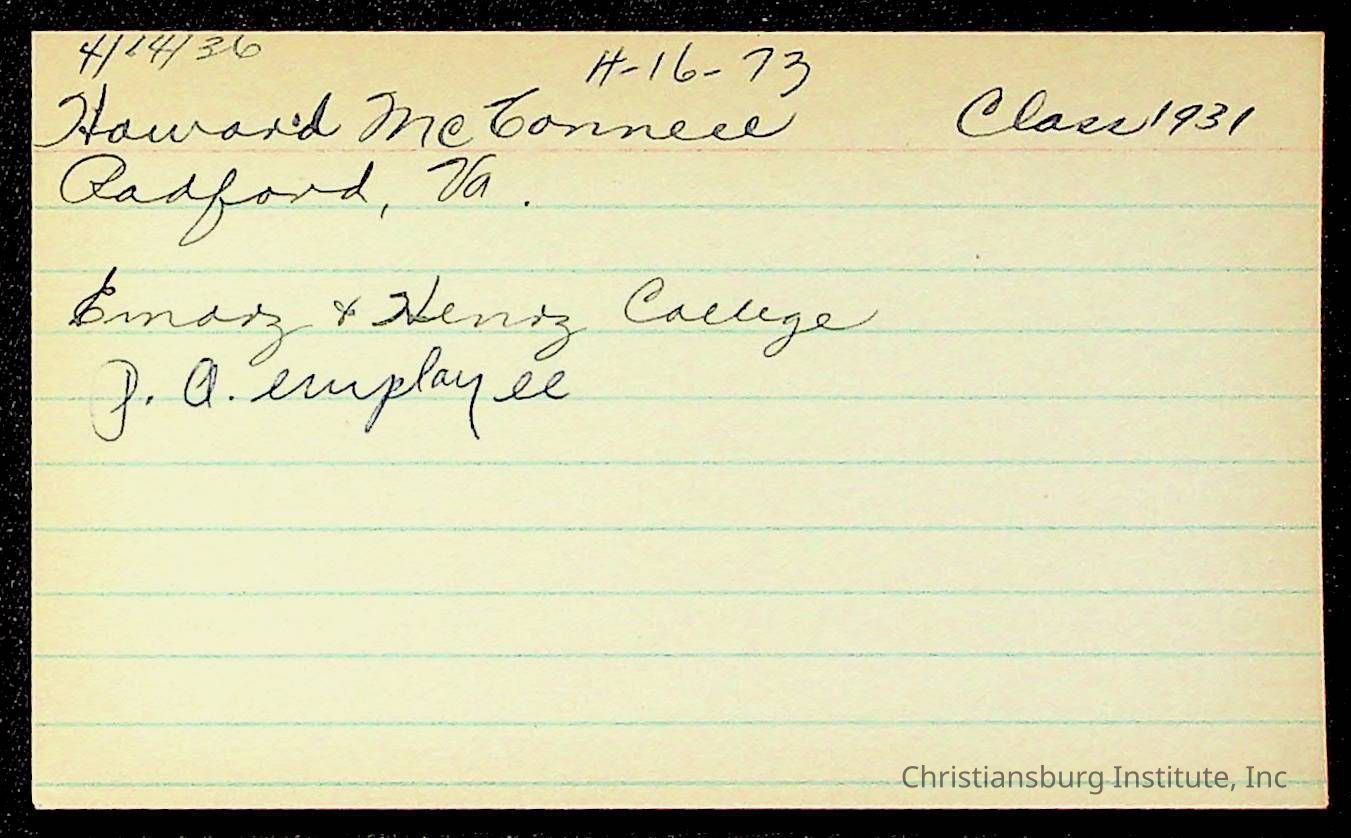 4/24/36
H-16-73
Howard McConnell Class 1931
Radford, Va.
Emory & Henry College
P. O. employee
Christiansburg Institute, Inc